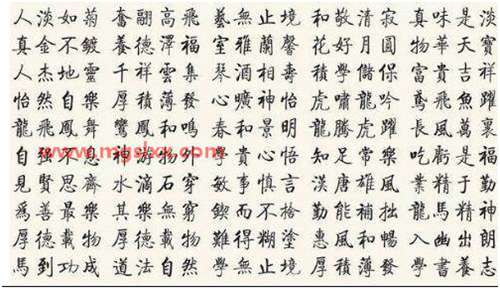 人淡如菊 奮翮高飛 藝無止境 和敬清寂 真味是淡
真金不鍍 養德澤福 室雅蘭馨 花好月圓 物華天寶
人杰地靈 千祥雲集 琴 相壽 積學儲 富貴吉祥
怡然自樂 厚積薄發 曠神怡 虎嘯龍吟 鳶飛魚躍
龍飛鳳舞 鸞鳳和鳴 春和景明 龍騰虎躍 長風萬裏
自強不息 物 貴心悟 知足常樂 吃虧是福
見賢思齊 水滴石穿 敏事慎言 漢唐雄風 業精于勤
爲善最樂 其樂無窮 鍥而不捨 勤能補拙 龍馬精神
厚德載物 厚德載物 難得糊塗 惠風和暢 入幽出朗
馬到功成 道法自然 學無止境 厚積薄發 學書養志
www.mgslxx.com